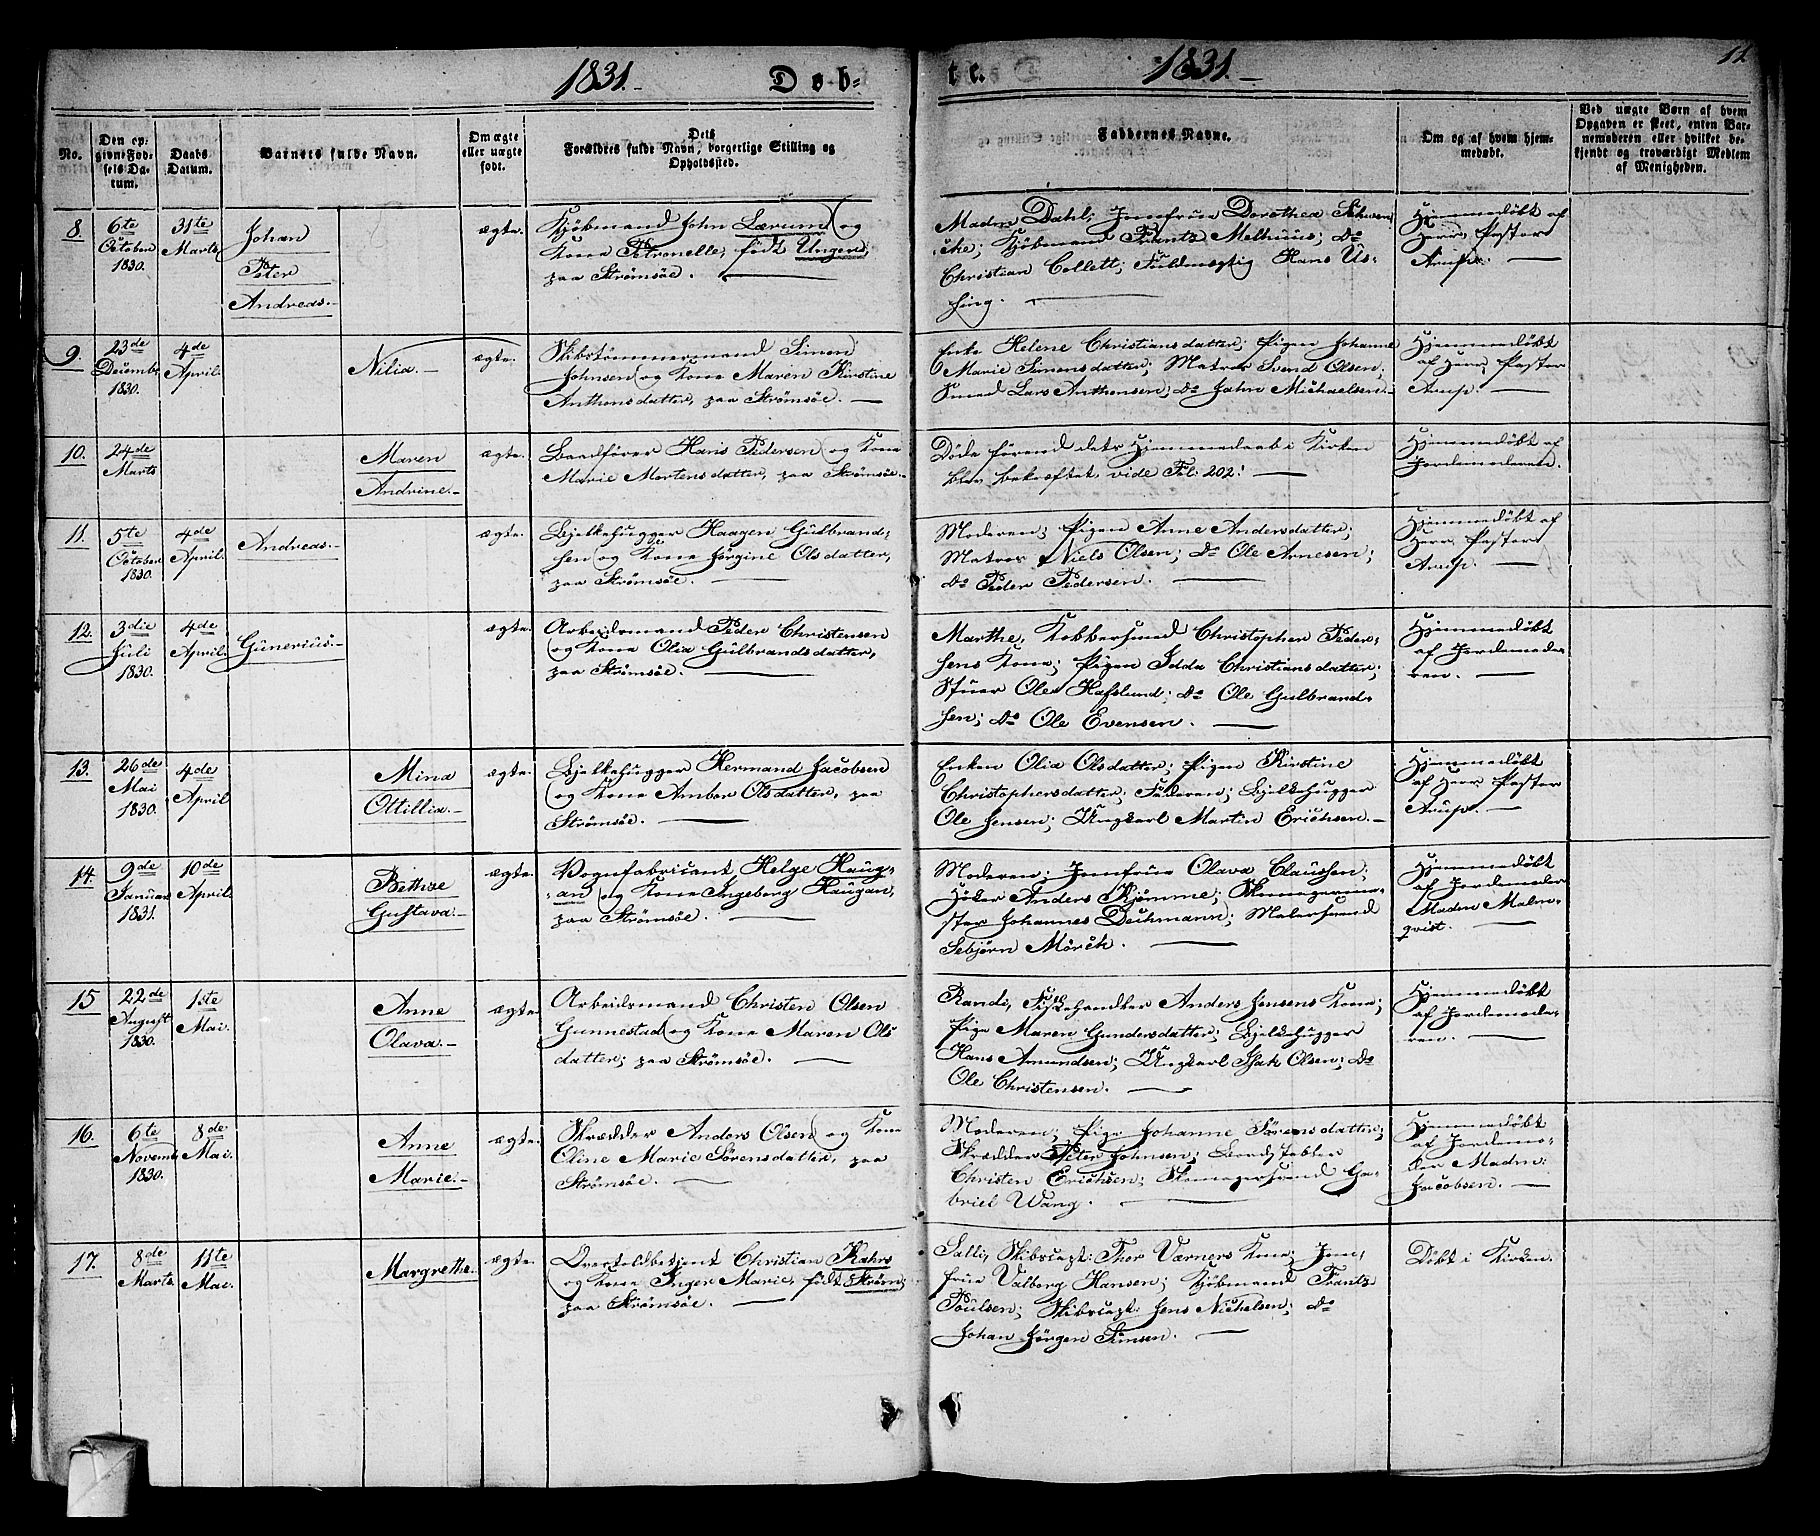 1831.
Døb-
te.
1831.
11
No.
Den opgivne Fødsels Datum.
Daabs Datum.
Barnets fulde Navn.
Om ægte eller uægte født.
Dets Forældres fulde Navn, borgerlige Stilling og Opholdssted.
Faddernes Navne.
Om og af hvem hjemmedøbt.
Ved uægte Børn af hvem Opgaven er skeet, enten Barnemoderen eller hvilket bekjendt og troværdigt Medlem af Menigheden.
8.
6te October 1830.
31te Marts
Johan
Peter
Andreas.
ægte.
Kjøbmand John Lærum (og
Kone Petronelle, født Unger,
paa Strømsøe.
Madm Dahl; Jomfrue Dorothea Schwen-
cke; Kjøbmand Frants Melhuus; Do
Christian Collett; Fuldmægtig Hans Us-
sing.
Hjemmedøbt af
Herr Pastor
Arup.
9.
23de Decembr 1830.
4de April
Nilia.
ægte.
Skibstømmermand Simon
Johnsen (og Kone Maren Kirstine
Anthonsdatter, paa Strømsøe.
Enke Helene Christiansdatter; Pigen Johanne
Marie Simensdatter; Matros Svend Olsen;
Smed Lars Anthonsen; Do John Michaelsen.
Hjemmedøbt
af Herr Pastor
Arup.
10.
24de Marts
Maren
Andrine.
ægte.
Baadfører Hans Pedersen (og Kone
Marie Mortensdatter, paa Strømsøe.
Døde førend dets Hjemmedaab i Kirken
blev bekræftet, vide Fol: 202.
Hjemmedøbt af
Jordemoderen.
11.
5te October 1830.
4de April
Andreas.
ægte.
Bjelkehugger Haagen Gulbrand-
sen (og Kone Jørgine Olsdatter,
paa Strømsøe.
Moderen; Pigen Anne Andersdatter;
Matros Niels Olsen; Do Ole Arnesen;
Do Peder Pedersen.
Hjemmedøbt af
Herr Pastor
Arup.
12.
3die Juli 1830.
4de April
Gunerius.
ægte.
Arbeidsmand Peder Christensen
(og Kone Olia Gulbrandsdatter,
paa Strømsøe.
Marthe, Kobbersmed Christopher Peder-
sens Kone; Pigen Idda Christiansdatter;
Stuer Ole Hafslund; Do Ole Gulbrand-
sen; Do Ole Evensen.
Hjemmedøbt
af Jordemode-
ren.
13.
26de Mai 1830.
4de April
Mina
Ottillia.
ægte.
Bjelkehugger Hermand Jacobsen
(og Kone Ambor Olsdatter, paa
Strømsøe.
Enken Olia Olsdatter; Pigen Kirstine
Christophersdatter; Faderen; Bjelkehugger
Ole Jensen; Ungkarl Martin Erichsen.
Hjemmedøbt
af Herr Pastor
Arup.
14.
9de Januar 1831.
10de April
Bethze
Gustava.
ægte.
Vognfabricant Helge Haug-
an (og Kone Ingeborg Haugan,
paa Strømsøe.
Moderen; Jomfrue Olava Claussen;
Høker Anders Kjømme; Skomagerme-
ster Johannes Dechmann; Malersvend
Sebjørn Mørch.
Hjemmedøbt
af Jordemoder
Madm Malm-
qvist.
15
22de August 1830.
1ste Mai.
Anne
Olava.
ægte.
Arbeidsmand Christen Olsen
Gunnestad (og Kone Maren Ols
datter; paa Strømsøe.
Randi, Fiskehandler Anders Jensens Kone;
Pige Maren Gundersdatter; Bjelkehugger
Hans Amundsen; Ungkarl Isak Olsen; Do
Ole Christensen.
Hjemmedøbt
af Jordemode-
ren.
16.
6te Novembr 1830.
8de Mai.
Anne
Marie.
ægte.
Skrædder Anders Olsen (og Kone
Oline Marie Sørensdatter, paa
Strømsøe.
Moderen; Pige Johanne Sørensdatter;
Skrædder Peter Johnsen;
Christen Erichsen; Skomagersvend Ga-
briel Wang.
Hjemmedøbt
af Jordemo-
der Madm:
Jacobsen.
17.
8de Marts
11te Mai.
Margrethe.
ægte.
Overtoldbetjent Christian Kahrs
(og Kone Inger Marie, født Strøm;
paa Strømsøe.
Salli, Skibscapt: Thor Værners Kone; Jom-
frue Valborg Hansen; Kjøbmand Frants
Poulsen; Skibscapt: Jens Nichelsen; Do
Johan Jørgen Simsen.
Døbt i Kirken.